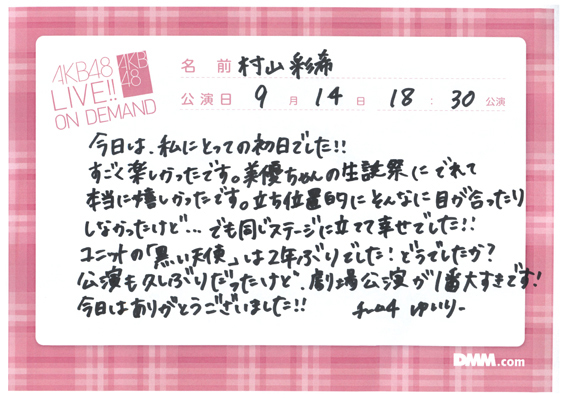 AKB48
LIVE!!
ON DEMAND
AKB
48
名前 村山彩希
公演日 9月14日 18:30公演
今日は、私にとっての初日でした!!
すごく楽しかったです。美優ちゃんの生誕祭にでれて
本当に嬉しかったです。立ち位置的にそんなに目が合ったり
しなかったけど… でも同じステージに立てて幸せでした!!
ユニットの「黒い天使」は2年ぶりでした!どうでしたか?
公演も久しぶりだったけど、劇場公演が1番大すきです!
今日はありがとうございました!! チーム4 ゆいりー
DMM.com